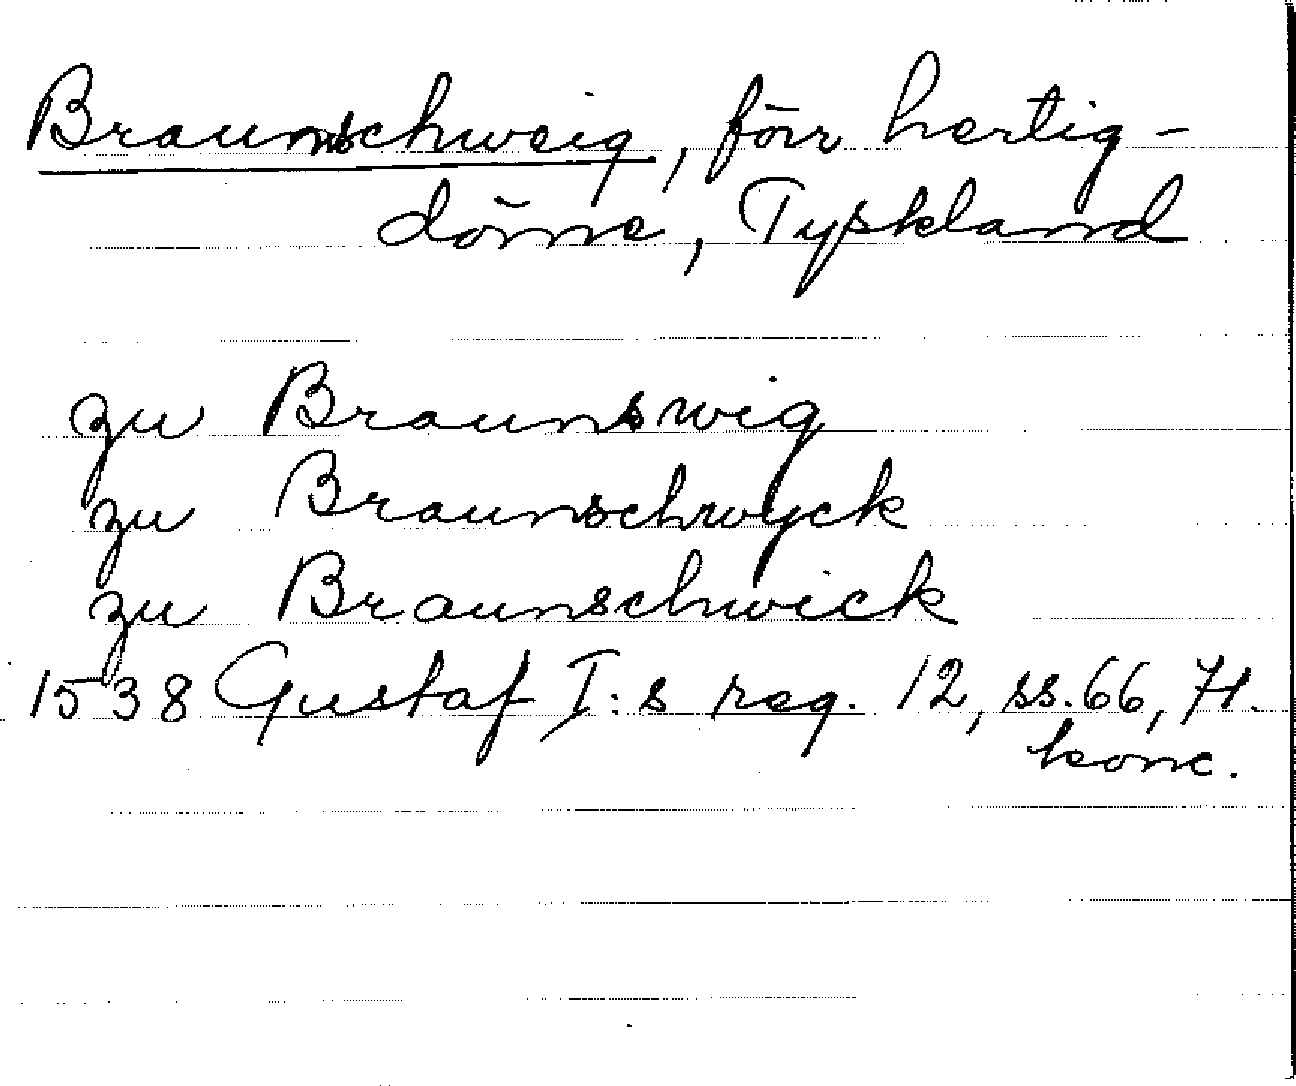 Braunschweig, förr hertig-
döme, Tyskland
zu Braunswig
zu Braunschwyck
zu Braunschwick
1538 Gustaf I:s reg. 12, ss. 66, 71.
konc.